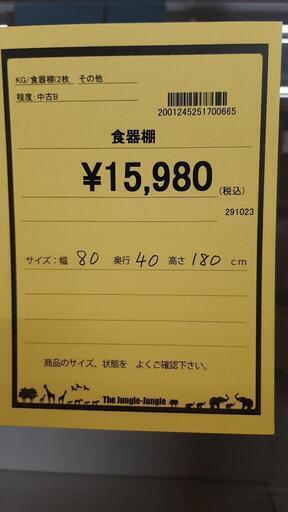 KG/食器棚(2枚 その他
程度:中古B
2001245251700665
食器棚
¥15,980(税込)
291023
サイズ:幅 80 奥行 40 高さ 180 cm
商品のサイズ、状態を よくご確認下さい。
The Jungle-Jungle